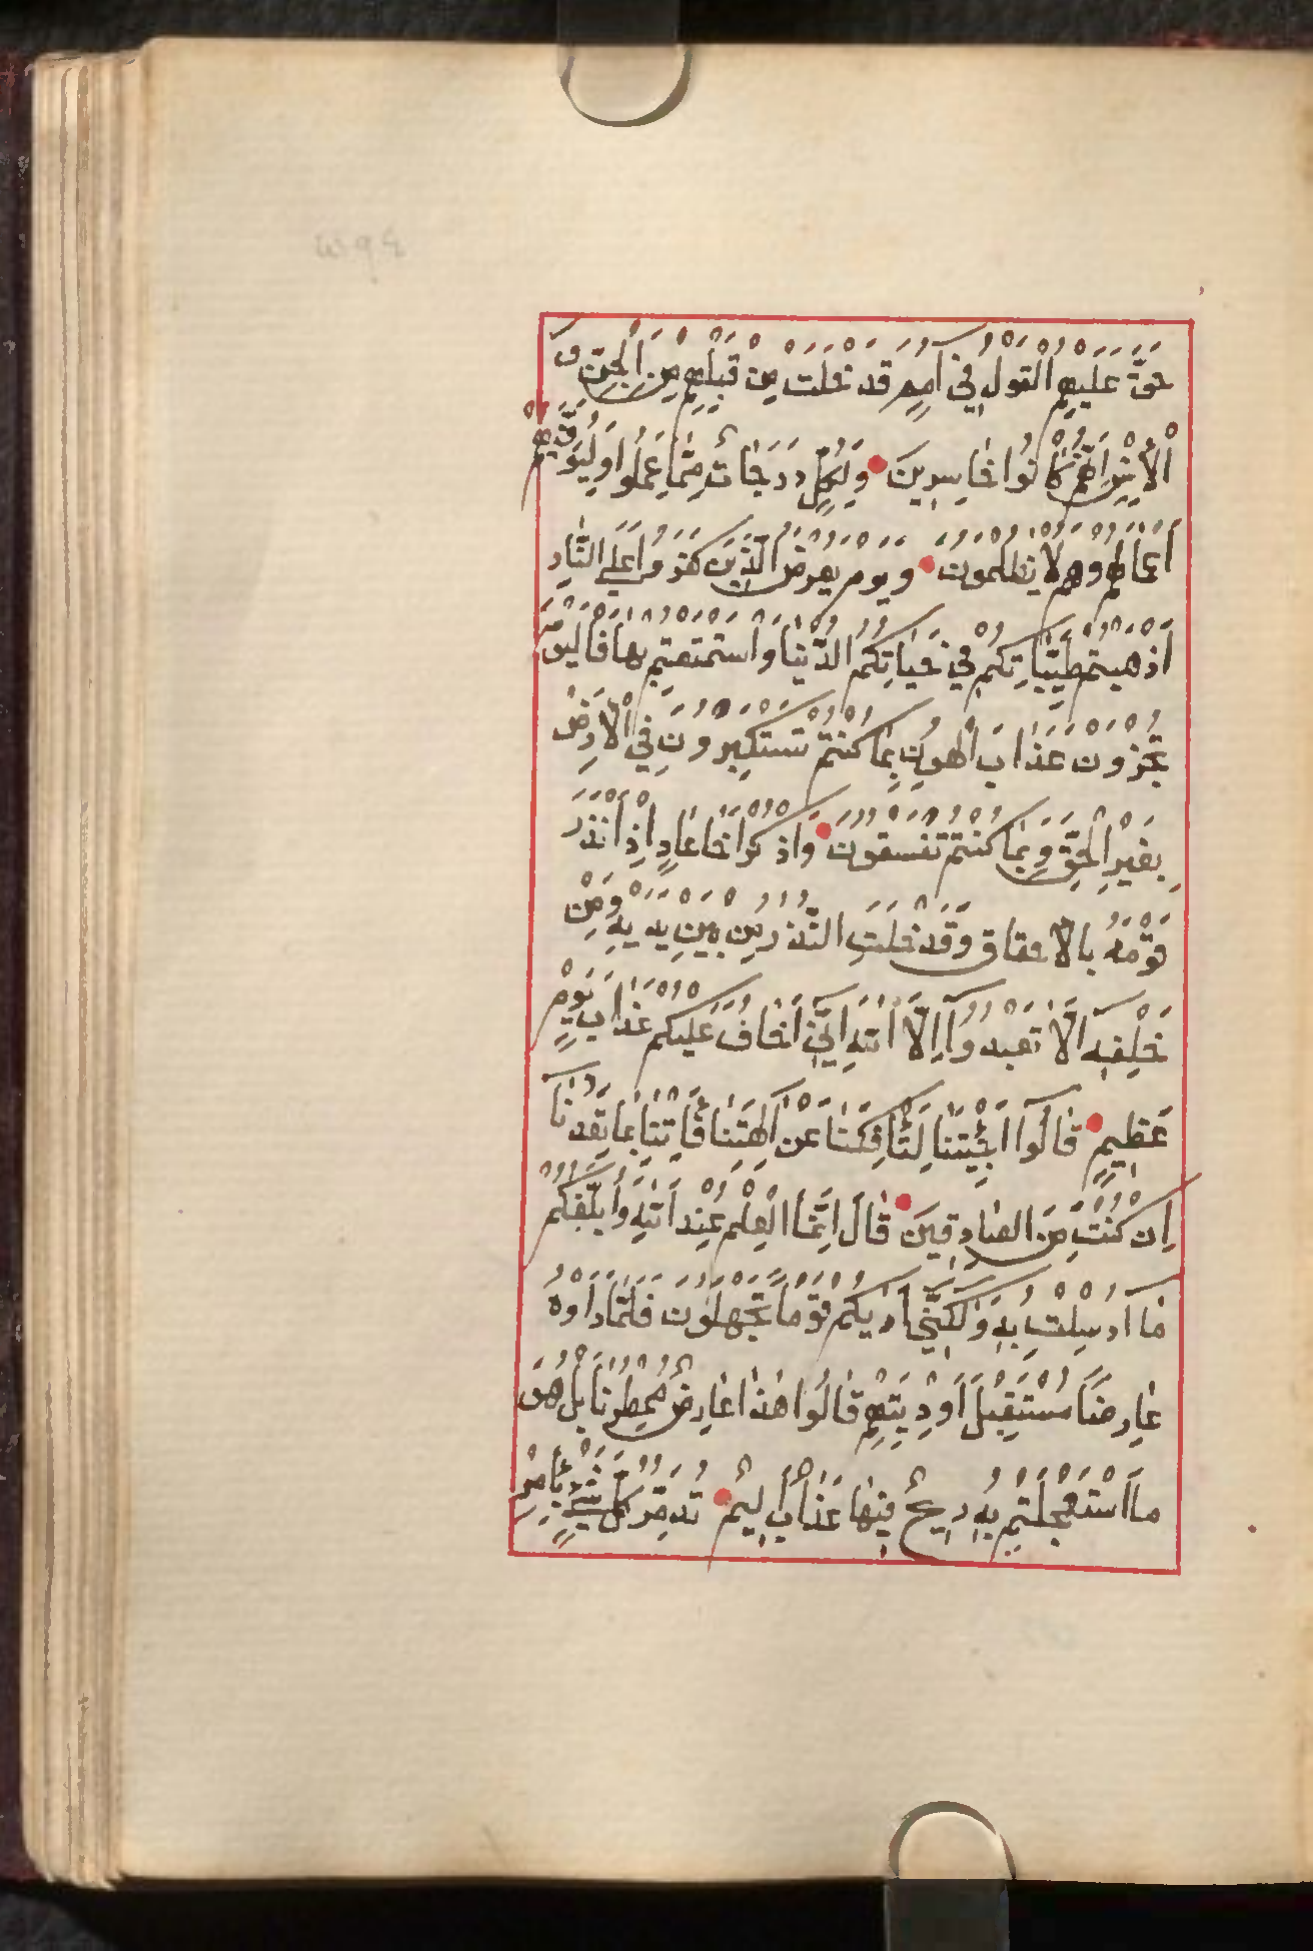 حَقَّ عَلَيْهِمُ الْقَوْلُ فِي أُمَمٍ قَدْ خَلَتْ مِنْ قَبْلِهِمْ مِنَ الْجِنِّ وَ
الْاِنْسِ اِنَّهُمْ كَانُوا خَاسِرِينَ وَلِكُلٍّ دَرَجَاتٌ مِمَّا عَمِلُوا وَلِيُوَفِّيَهُمْ
اَعْمَالَهُمْ وَهُمْ لَا يُظْلَمُونَ وَيَوْمَ يُعْرَضُ الَّذِينَ كَفَرُوا عَلَى النَّارِ
اَذْهَبْتُمْ طَيِّبَاتِكُمْ فِي حَيَاتِكُمُ الدُّنْيَا وَاسْتَمْتَعْتُمْ بِهَا فَالْيَوْمَ
تُجْزَوْنَ عَذَابَ الْهُونِ بِمَا كُنْتُمْ تَسْتَكْبِرُونَ فِي الْاَرْضِ
بِغَيْرِ الْحَقِّ وَبِمَا كُنْتُمْ تَفْسُقُونَ وَاذْكُرْ اَخَا عَادٍ اِذْ اَنْذَرَ
قَوْمَهُ بِالْاَحْقَافِ وَقَدْ خَلَتِ النُّذُرُ مِنْ بَيْنِ يَدَيْهِ وَمِنْ
خَلْفِهِ اَلَّا تَعْبُدُوا اِلَّا اللّٰهَ اِنِّي اَخَافُ عَلَيْكُمْ عَذَابَ يَوْمٍ
عَظِيمٍ قَالُوا اَجِئْتَنَا لِتَأْفِكَنَا عَنْ اٰلِهَتِنَا فَأْتِنَا بِمَا تَعِدُنَا
اِنْ كُنْتَ مِنَ الصَّادِقِينَ قَالَ اِنَّمَا الْعِلْمُ عِنْدَ اللّٰهِ وَاُبَلِّغُكُمْ
مَا اُرْسِلْتُ بِهِ وَلٰكِنِّي اَرٰيكُمْ قَوْمًا تَجْهَلُونَ فَلَمَّا رَاَوْهُ
عَارِضًا مُسْتَقْبِلَ اَوْدِيَتِهِمْ قَالُوا هٰذَا عَارِضٌ مُمْطِرُنَا بَلْ هُوَ
مَا اسْتَعْجَلْتُمْ بِهِ رِيحٌ فِيهَا عَذَابٌ اَلِيمٌ تُدَمِّرُ كُلَّ شَيْءٍ بِاَمْرِ